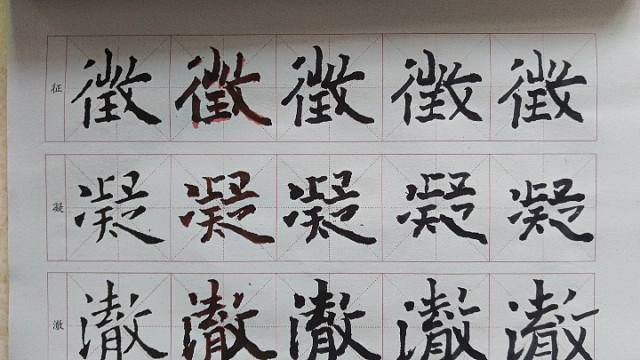 征 徵 徵 徵 徵 徵
凝 凝 凝 凝 凝 凝
澈 澈 澈 澈 澈 澈